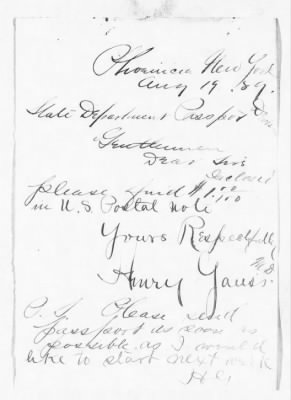 Phoenicia New York
Aug 19 89.
State Department Passport Div
Gentlemen
Dear Sirs
Inclosed
please find $1.00
in U.S. Postal note
Yours Respectfully
Henry M.D.
P.S. Please send
passport as soon as
possible as I would
like to start next week
H.G.